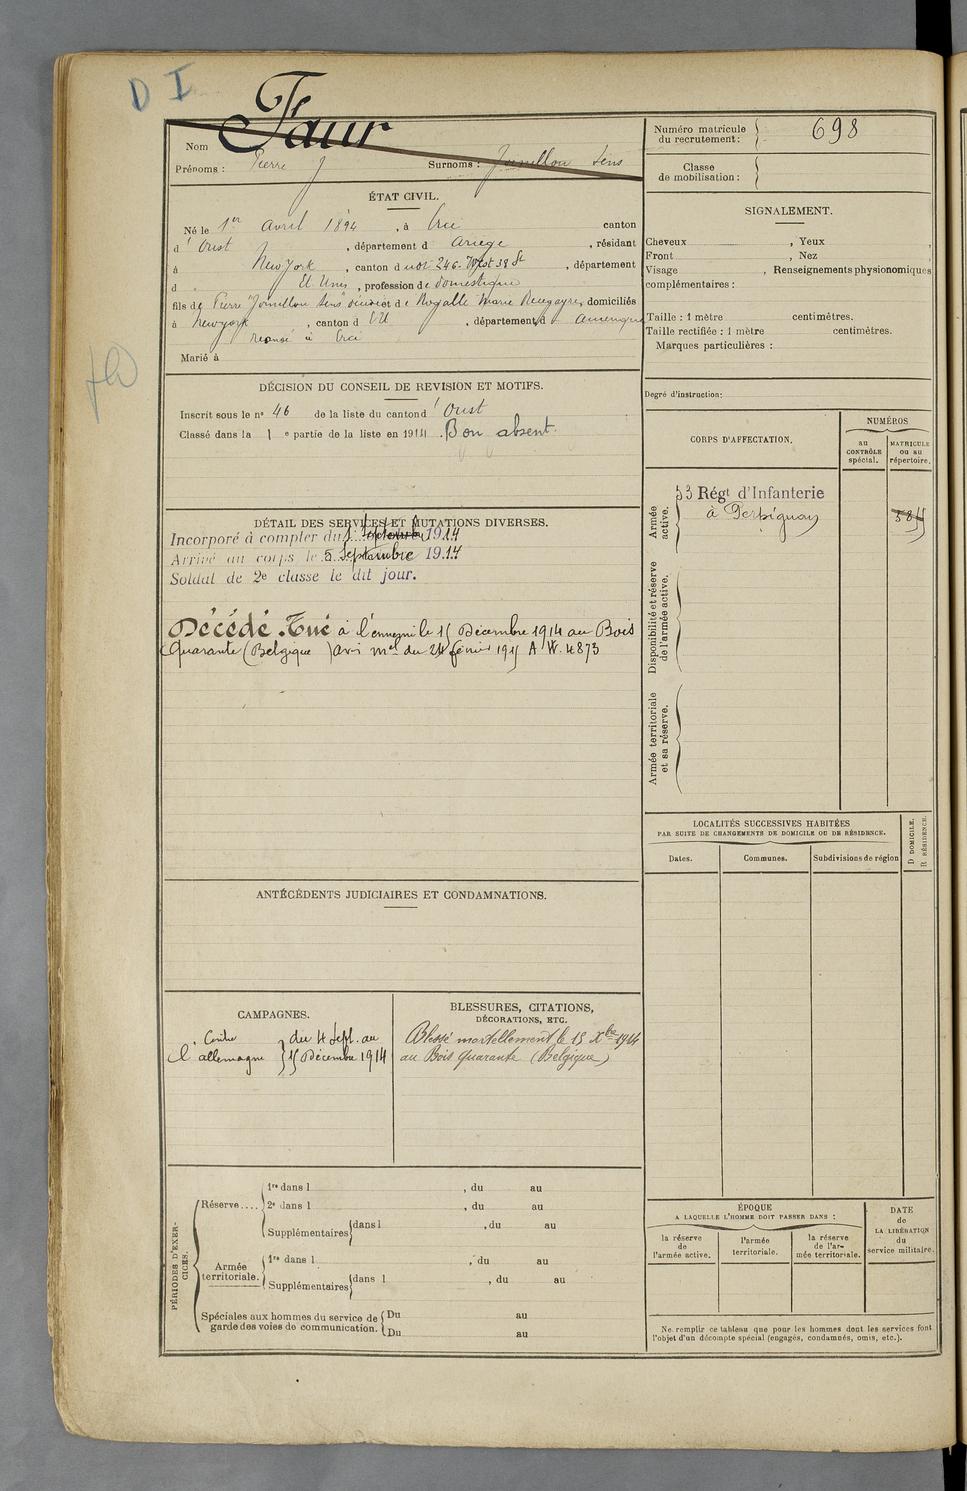 D I
Faur
Nom
Prénoms : Pierre J
Surnoms : Jomillou Sens
Numéro matricule
du recrutement :
698
Classe
de mobilisation :
ÉTAT CIVIL.
Né le 1er Avril 1894, à canton
d' Oust, département d Ariège, résidant
à New York, canton d 246. West 38 St, département
d Et Unis, profession de domestique
fils de Pierre Jomillou Sens et de Rogalle Marie, domiciliés
à Newyork, canton d EU, département d Amérique
à
Marié à
SIGNALEMENT.
Cheveux , Yeux ,
Front , Nez
Visage , Renseignements physionomiques
complémentaires :
Taille : 1 mètre centimètres.
Taille rectifiée : 1 mètre centimètres.
Marques particulières :
Degré d'instruction :
DÉCISION DU CONSEIL DE REVISION ET MOTIFS.
Inscrit sous le n° 46 de la liste du canton d' Oust
Classé dans la 1 e partie de la liste en 1914. Bon absent.
CORPS D'AFFECTATION.
NUMÉROS
au
CONTRÔLE
spécial.
MATRICULE
ou au
répertoire.
Armée
active.
53 Régt d'Infanterie
à Perpignan
Disponibilité et réserve
de l'armée active.
Armée territoriale
et sa réserve.
DÉTAIL DES SERVICES ET MUTATIONS DIVERSES.
Incorporé à compter du 1 Septembre 1914
Arrivé au corps le 5 Septembre 1914
Soldat de 2e classe le dit jour.
Décédé. Tué à l'ennemi le 15 Décembre 1914 au Bois
Quarante (Belgique) avis mel du 24 février 1915 A W. 4873
LOCALITÉS SUCCESSIVES HABITÉES
PAR SUITE DE CHANGEMENTS DE DOMICILE OU DE RÉSIDENCE.
Dates.
Communes.
Subdivisions de région
D DOMICILE.
R RÉSIDENCE.
ANTÉCÉDENTS JUDICIAIRES ET CONDAMNATIONS.
CAMPAGNES.
Contre
l'allemagne
du 4 Sept. au
15 Décembre 1914
BLESSURES, CITATIONS,
DÉCORATIONS, ETC.
Blessé mortellement le 15 Xbre 1914
au Bois Quarante (Belgique)
PÉRIODES D'EXER-
CICES.
Réserve....
1re dans l , du au
2e dans l , du au
Supplémentaires dans l , du au
Armée
territoriale.
1re dans l , du au
Supplémentaires dans l , du au
Spéciales aux hommes du service de
garde des voies de communication.
Du au
Du au
ÉPOQUE
A LAQUELLE L'HOMME DOIT PASSER DANS :
la réserve
de
l'armée active.
l'armée
territoriale.
la réserve
de l'ar-
mée territoriale.
DATE
de
LA LIBÉRATION
du
service militaire.
Ne remplir ce tableau que pour les hommes dont les services font
l'objet d'un décompte spécial (engagés, condamnés, omis, etc.).